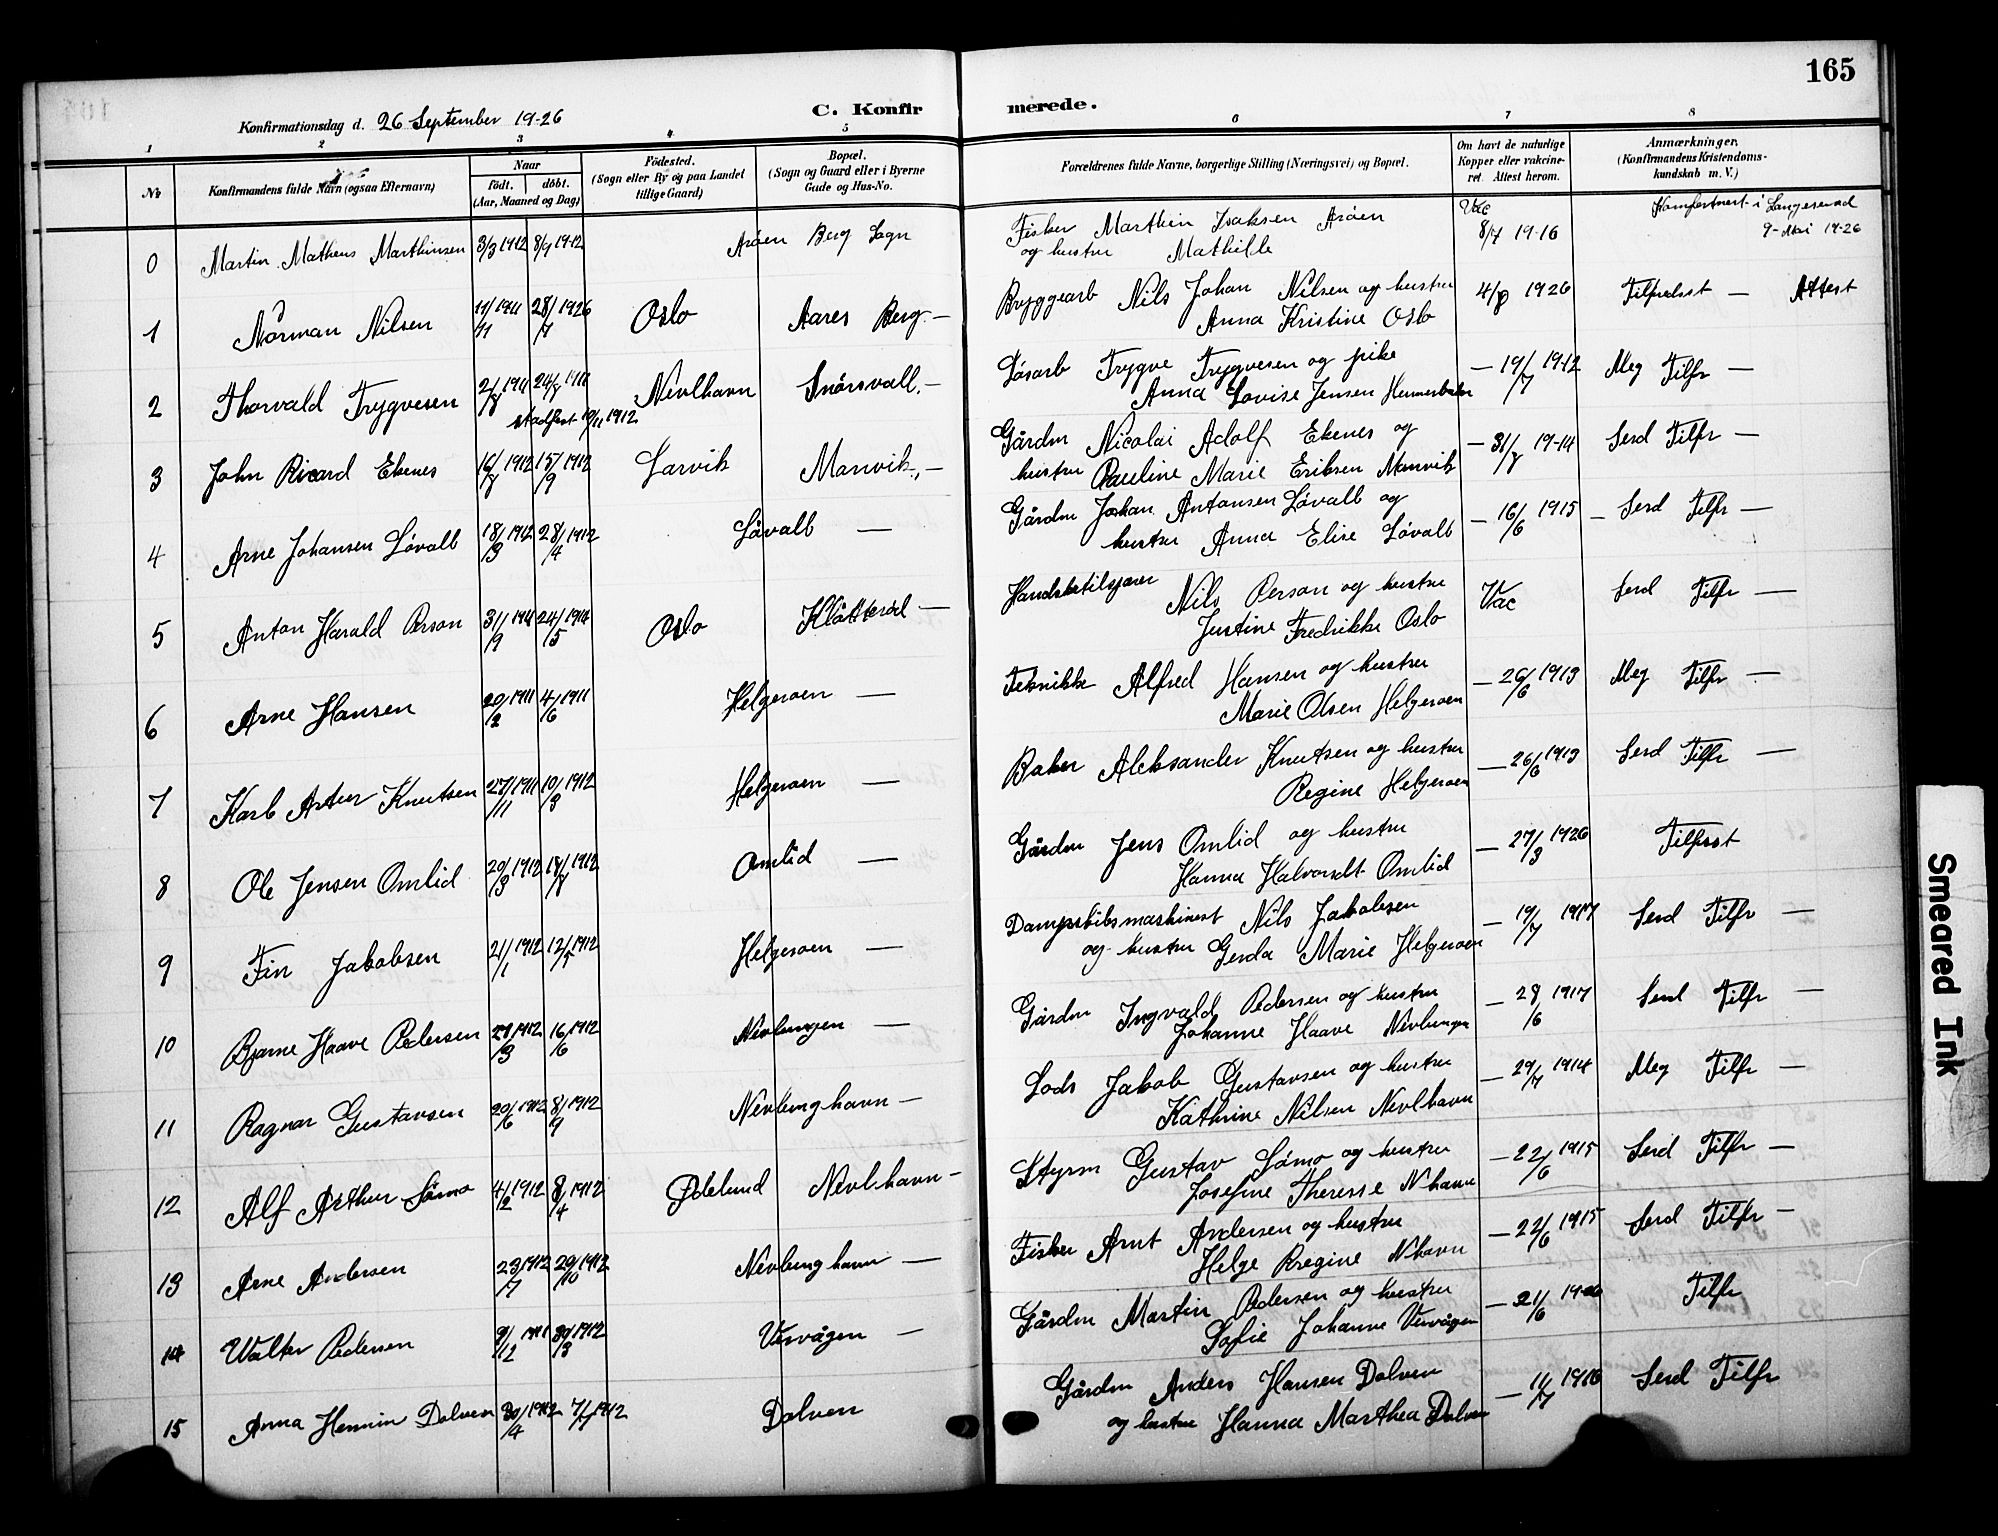 165
Konfirmationsdag d. 26 September 19-26
C. Konfir merede.
1 2 3 4 5 6 7 8
No Konfirmandens fulde Navn (ogsaa Efternavn) Naar født. døbt. (Aar, Maaned og Dag) Fødested. (Sogn eller By og paa Landet tillige Gaard) Bopæl. (Sogn og Gaard eller i Byerne Gade og Hus-No. Forældrenes fulde Navne, borgerlige Stilling (Næringsvei) og Bopæl. Om havt de naturlige Kopper eller vakcineret. Attest herom. Anmærkninger, (Konfirmandens Kristendomskundskab m. V.)
0 Martin Matheus Marthinsen 3/3 1912 8/4 19-12 Arøen Berg Sogn Fisker Marthin Isaksen Arøen Vac Langesund
og hustru Mathilde 8/7 19-16 9-Mai 19-26
1 Norman Nilsen 11/11 1911 28/7 1926 Oslo Aares Berg - Bryggearb Nils Johan Nilsen og hustru 4/8 1926 Tilfredsst - Attest
Anna Kristine Oslo
2 Thorvald Trygvesen 2/8 1911 24/8 1911 Nevlhavn Snørsvall - Løsarb Trygve Trygvesen og pike - 19/7 1912 Meg Tilfr -
stadfest 10/11 1912 Anna Lovise Jensen
3 John Ricard Ekenes 16/8 1912 15/9 1912 Larvik Manvik - Gårdm Nicolai Adolf Ekenes og - 31/8 19-14 Serd Tilfr -
hustru Pauline Marie Eriksen Manvik
4 Arne Johansen Løvall 18/3 1912 28/4 1912 Løvall - Gårdm Johan Antonsen Løvall og - 16/6 1915 - Serd Tilfr -
hustru Anna Elise Løvall
5 Anton Harald Person 31/3 1911 24/5 1911 Oslo Klåtterød - Nils Person og hustru Vac Serd Tilfr -
Justine Fredrikke Oslo
6 Arne Hansen 20/2 1911 4/6 1911 Helgeroen - Teknikk Alfred Hansen og hustru - 26/6 1913 Meg Tilfr -
Marie Olsen Helgeroen
7 Karl Artur Knutsen 27/11 1911 10/3 1912 Helgeroen - Baker Aleksander Knutsen og hustru - 26/6 1913 Serd Tilfr -
Regine Helgeroen
8 Ole Jensen Omlid 20/3 1912 18/8 1912 Omlid - Gårdm Jens Omlid og hustru - 27/3 1926 Tilfrsst
Hanna Halvorsdt Omlid
9 Fin Jakobsen 21/1 1912 12/5 1912 Helgeroen - Dampskibsmaskinest Nils Jakobsen - 19/7 1917 Serd Tilfr -
og hustru Gerda Marie Helgeroen
10 Bjarne Haave Pedersen 1912 16/6 1912 Nevlungen - Gårdm Ingvald Pedersen og hustru - 28/6 1917 Serd Tilfr -
Johanne Haave Nevlungen
11 Ragnar Gustavsen 20/6 1912 8/9 1912 Nevlunghavn - Lods Jakob Gustavsen og hustru - 29/7 1914 Meg Tilfr -
Kathrine Nilsen Nevlhavn
12 Alf Arthur Sørmo 4/2 1912 8/4 1912 Ødelund Nevlhavn - Styrm Gustav Sørmo og hustru - 22/6 1915 Serd Tilfr -
Josefine Theresse N havn
13 Arne Andersen 23/7 1912 20/10 1912 Nevlunghavn - Fisker Arnt Andersen og hustru - 22/6 1915 Serd Tilfr -
Helge Regine N havn
14 Walter Pedersen 9/12 1911 1912 Vevvågen - Gårdm Martin Pedersen og hustru - 21/6 Tilfr
Sofie Johanne Vevvågen
15 Anna Henrin Dolven 30/4 1912 1912 Dolven Gårdm Anders Hansen Dolven - 11/7 1916 Serd Tilfr
og hustru Hanna Marthea Dolven
Smeared Ink